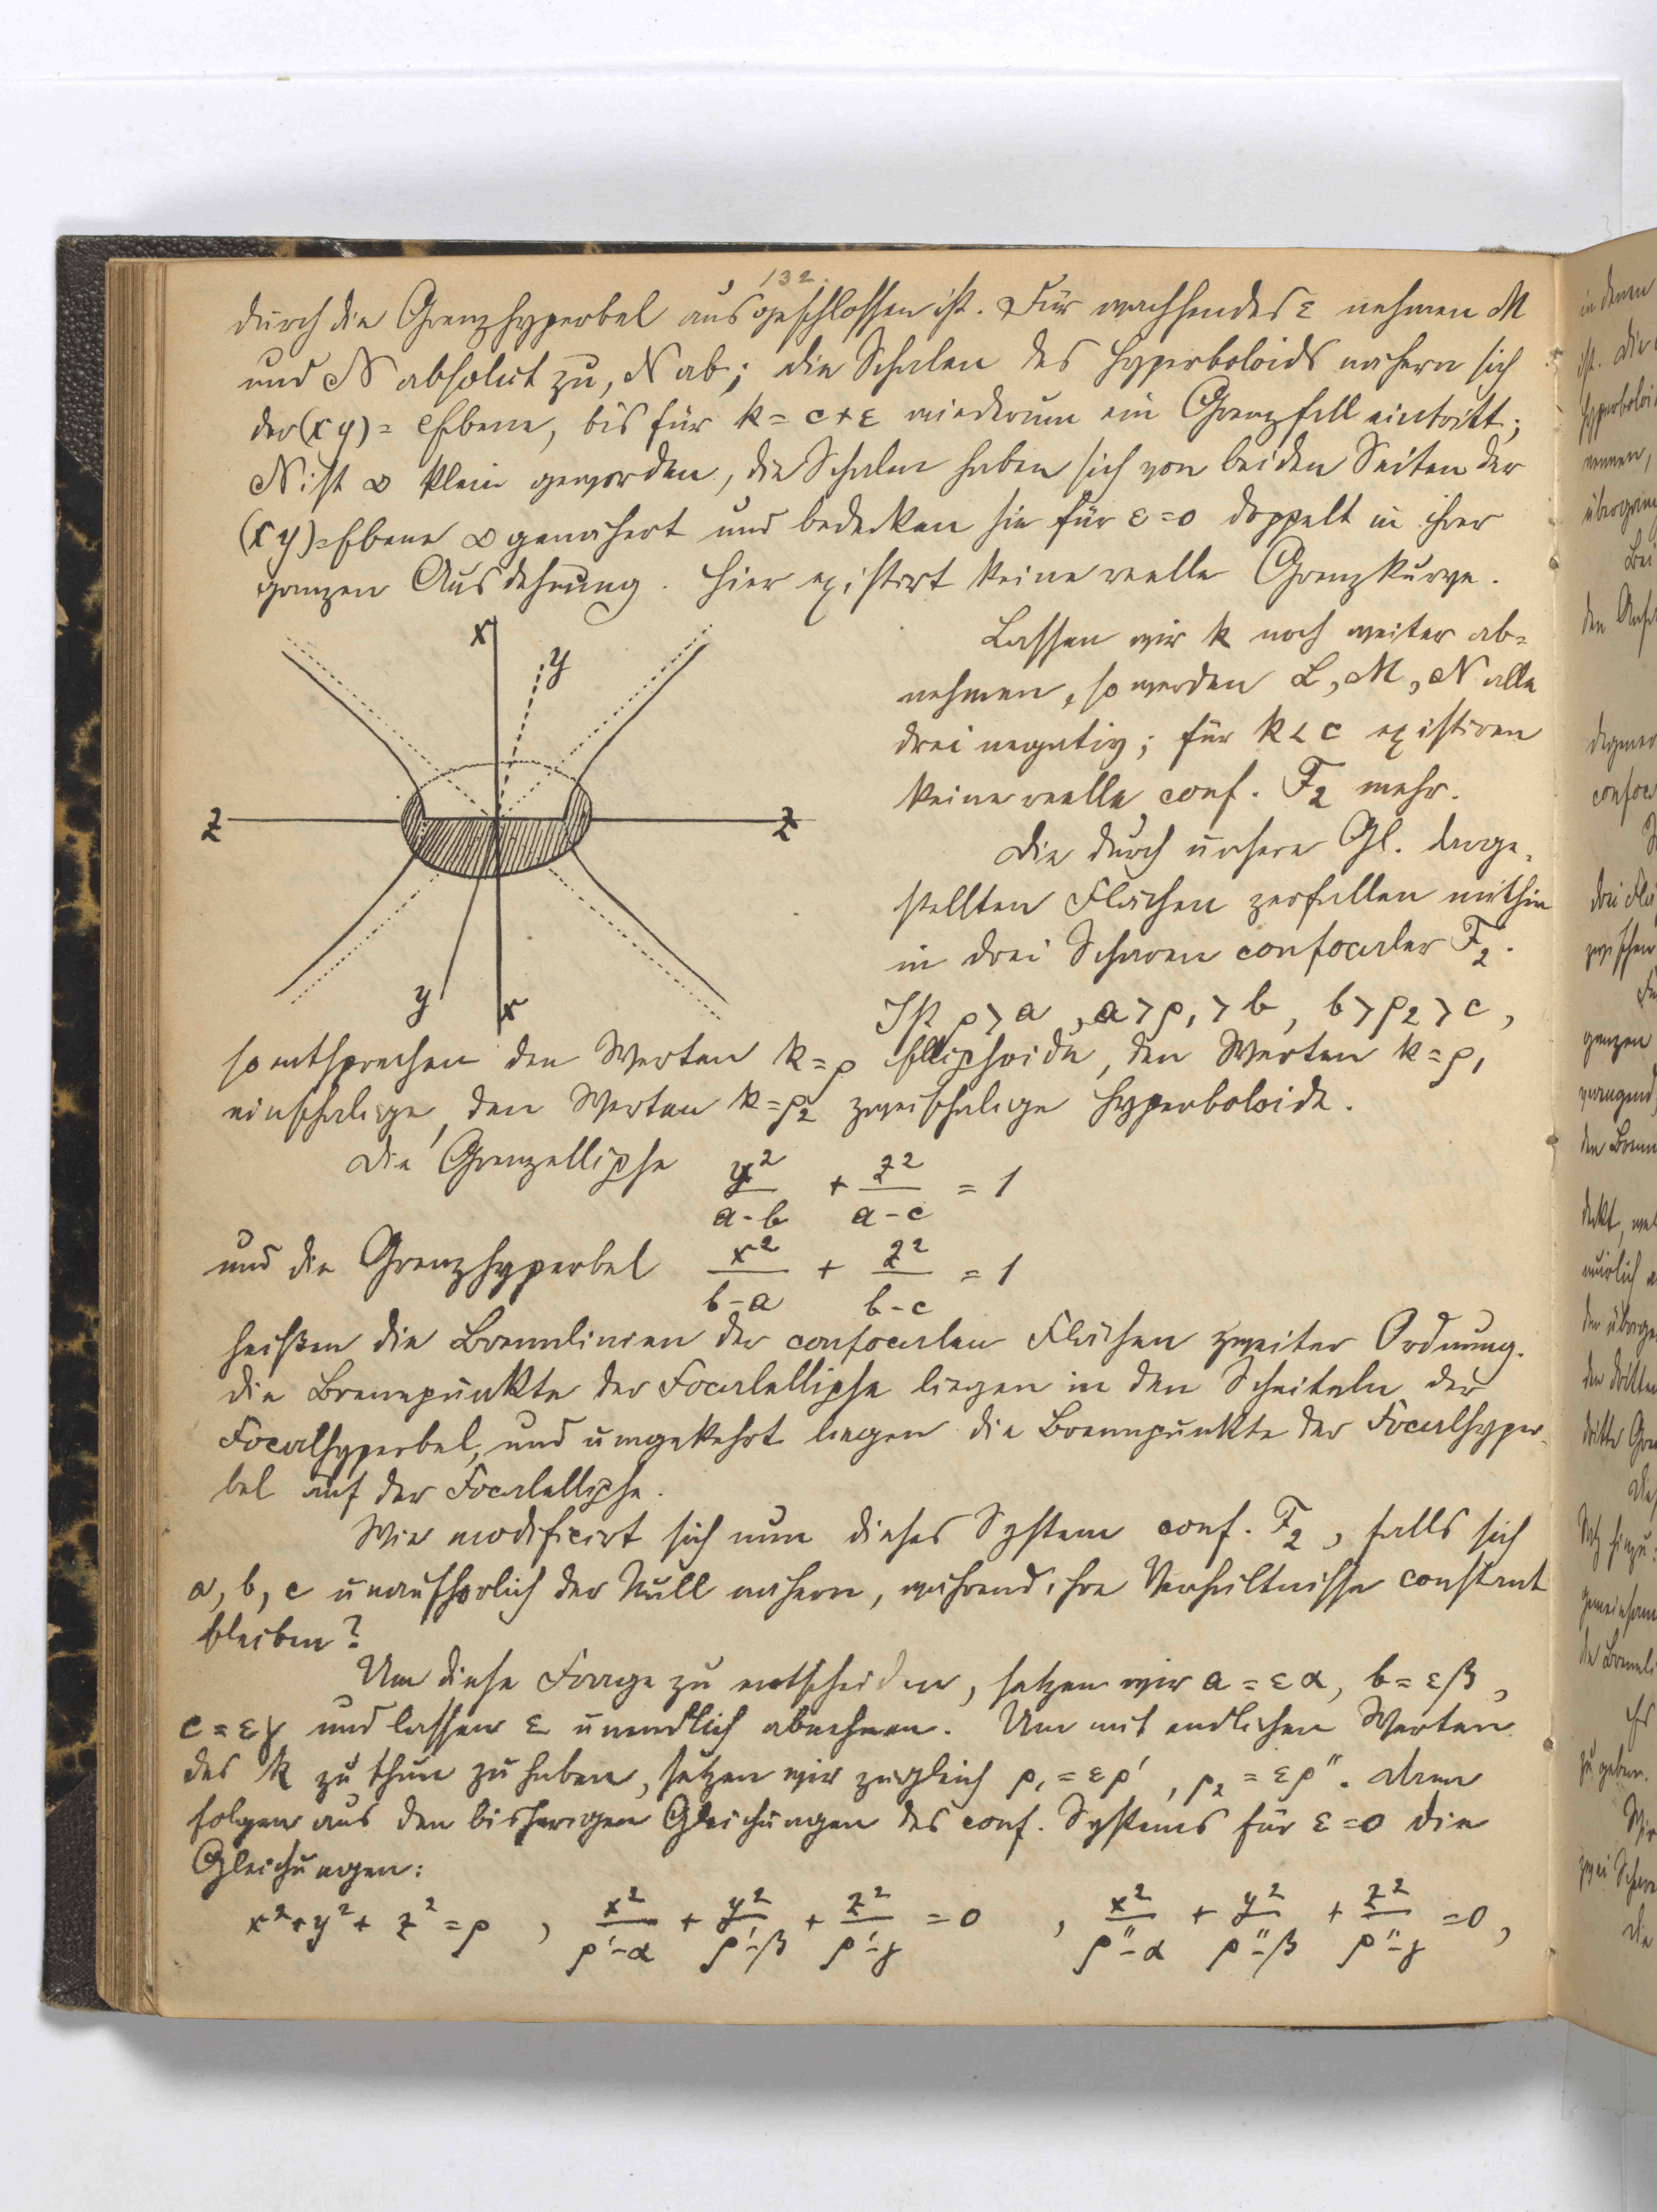 132.
durch die Grenzhyperbel ausgeschlossen ist. Für wachsendes ε nehmen M
und N absolut zu, N ab; die Schalen des Hyperboloids nähern sich
der (xy)=Ebene, bis für k = c+ε wiederum ein Grenzfall eintritt;
N ist ∞ klein geworden, die Schalen haben sich von beiden Seiten der
(xy)=Ebene ∞ genähert und bedecken sie für ε=0 doppelt in ihrer
ganzen Ausdehnung. Hier existirt keine reelle Grenzkurve.
x
y
z
z
y
x
Lassen wir k noch weiter ab=
nehmen, so werden L, M, N alle
drei negativ; für k<c existiren
keine reelle conf. F₂ mehr.
Die durch unsere Gl. darge=
stellten Flächen zerfallen mithin
in drei Scharen confocaler F₂.
Ist ρ>a, a>ρ₁>b, b>ρ₂>c,
so entsprechen den Werten k=ρ Ellipsoide, den Werten k=ρ₁
einschalige, den Werten k=ρ₂ zweischalige Hyperboloide.
Die Grenzellipse y²/(a-b) + z²/(a-c) = 1
und die Grenzhyperbel x²/(b-a) + z²/(b-c) = 1
heißen die Brennlinien der confocalen Flächen zweiter Ordnung.
die Brennpunkte der Focalellipse liegen in den Scheiteln der
Focalhyperbel, und umgekehrt liegen die Brennpunkte der Focalhyper=
bel auf der Focalellipse.
Wie modificirt sich nun dieses System conf. F₂, falls sich
a, b, c unaufhörlich der Null nähern, während ihre Verhältnisse constant
bleiben?
Um diese Frage zu entscheiden, setzen wir a = εα, b = εβ,
c = εγ und lassen ε unendlich abnehmen. Um mit endlichen Werten
des k zu thun zu haben, setzen wir zugleich ρ₁ = ερ', ρ₂ = ερ''. Dann
folgen aus den bisherigen Gleichungen des conf. Systems für ε=0 die
Gleichungen:
x²+y²+z² = ρ, x²/(ρ'-α) + y²/(ρ'-β) + z²/(ρ'-γ) = 0, x²/(ρ''-α) + y²/(ρ''-β) + z²/(ρ''-γ) = 0,